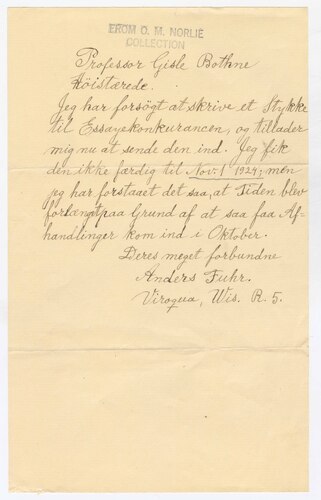 FROM O. M. NORLIE
COLLECTION
Professor Gisle Bothne
Höistærede.
Jeg har forsögt at skrive et Stykke
til Essayekonkurancen, og tillader
mig nu at sende den ind. Jeg fik
den ikke færdig til Nov. 1 1924; men
jeg har forstaaet det saa, at Tiden blev
forlængt paa Grund af at saa faa Af-
handlinger kom ind i Oktober.
Deres meget forbundne
Anders Fuhr.
Viroqua, Wis. R. 5.